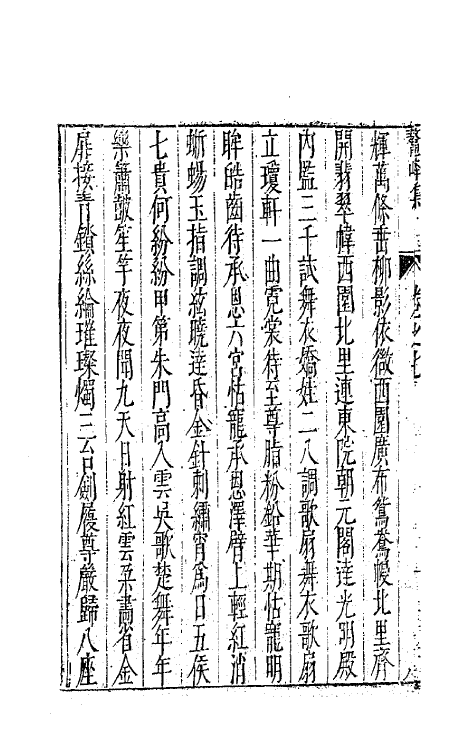 鰲峰集
卷之七
輝萬條垂柳影依微西園廣布鴛鴦幔北里齊
開翡翠幃西園北里連東院朝元閣達光明殿
內監三千試舞衣嬌娃二八調歌扇舞衣歌扇
立瓊軒一曲霓裳待至尊脂粉鉛華期怙寵明
眸皓齒待承恩六宮怙寵承恩澤臂上輕紅消
蜥蜴玉指調絃曉達昏金針刺繡宵爲日五侯
七貴何紛紛甲第朱門高入雲吳歌楚舞年年
樂簫鼓笙竽夜夜聞九天日射紅雲朶畵省金
扉接青鎖絲綸璀璨燭三台劍履尊嚴歸八座